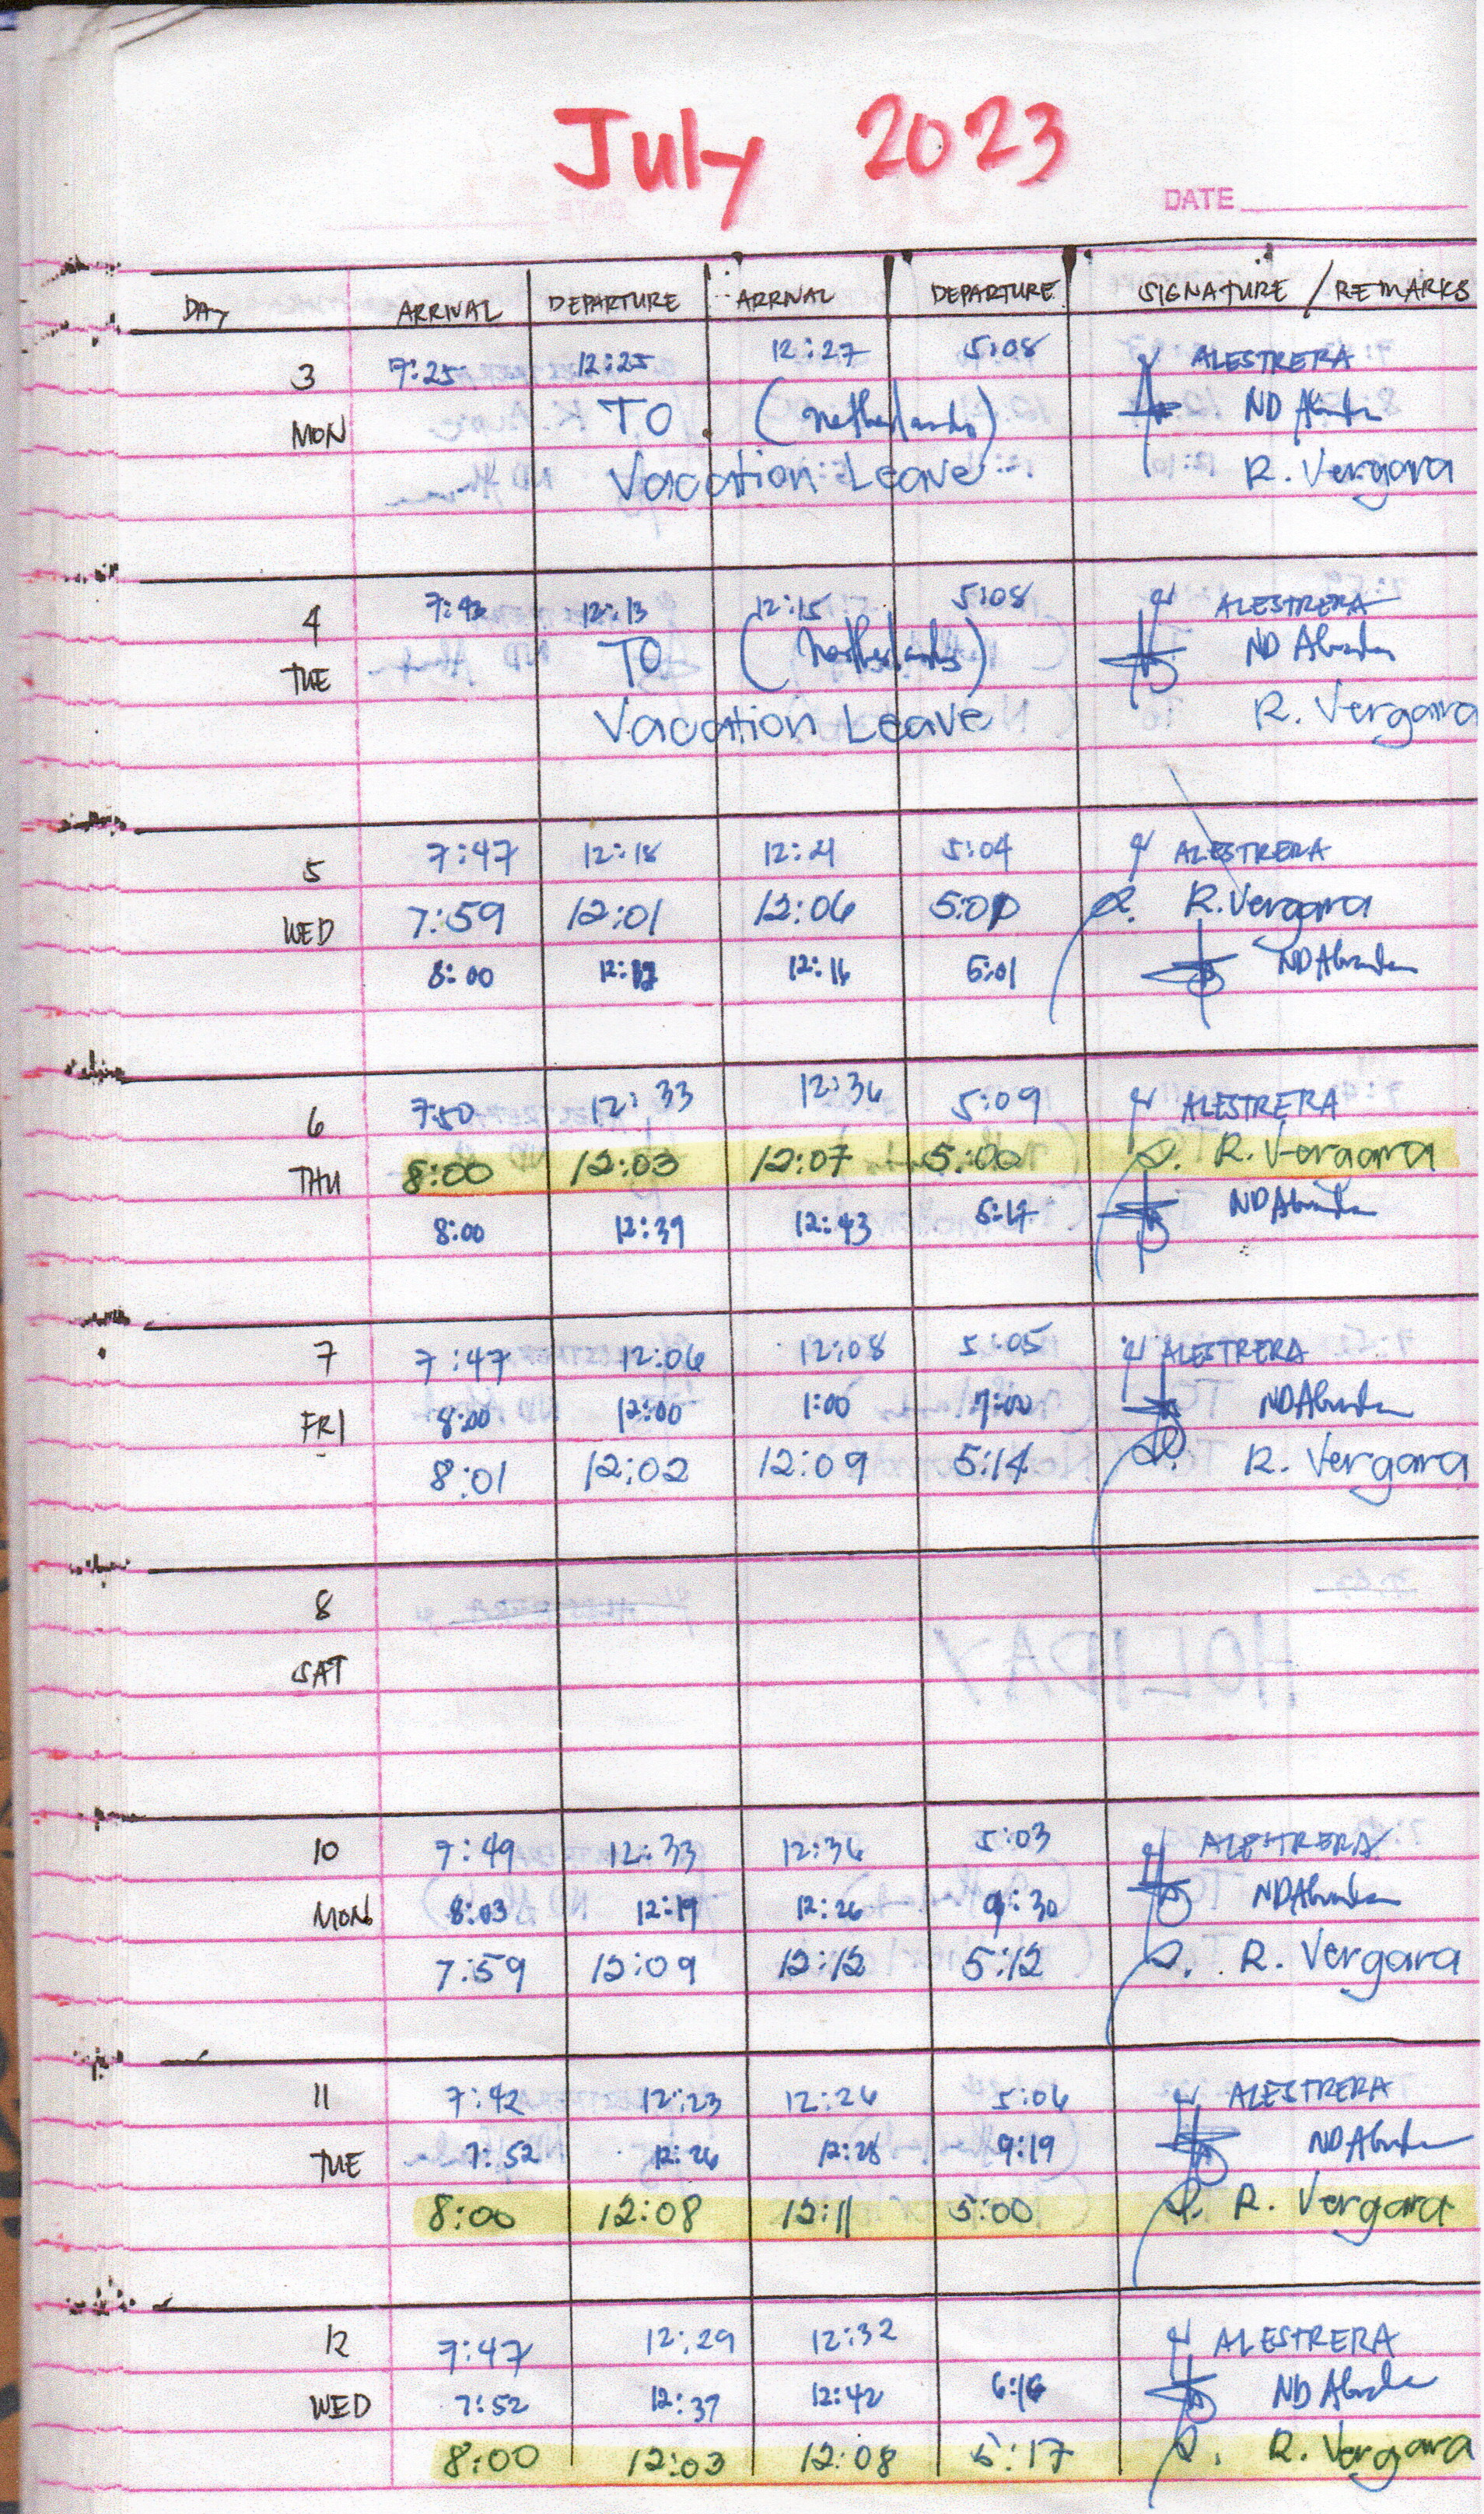 July 2023
DATE
DAY ARRIVAL DEPARTURE ARRIVAL DEPARTURE SIGNATURE / REMARKS
3 7:25 12:25 12:27 5:08 ALESTRERA
MON TO (Netherlands) ND
Vacation Leave R. Vergara
4 7:43 12:13 12:15 5:08 ALESTRERA
TUE TO (Netherlands) ND
Vacation Leave R. Vergara
5 7:47 12:18 12:21 5:04 ALESTRERA
WED 7:59 12:01 12:06 5:00 R. Vergara
8:00 12:16 5:01 ND
6 7:50 12:33 12:36 5:09 ALESTRERA
THU 8:00 12:03 12:07 5:00 R. Vergara
8:00 12:39 12:43 5:17 ND
7 7:47 12:06 12:08 5:05 ALESTRERA
FRI 8:00 12:00 1:00 7:00 ND
8:01 12:02 12:09 5:14 R. Vergara
8
SAT
10 7:49 12:33 12:36 5:03 ALESTRERA
MON 8:03 12:19 12:26 9:30 ND
7:59 12:09 12:12 5:12 R. Vergara
11 7:42 12:23 12:26 5:06 ALESTRERA
TUE 7:52 12:26 12:28 9:19 ND
8:00 12:08 12:11 5:00 R. Vergara
12 7:47 12:29 12:32 ALESTRERA
WED 7:52 12:37 12:42 6:16 ND
8:00 12:03 12:08 5:17 R. Vergara